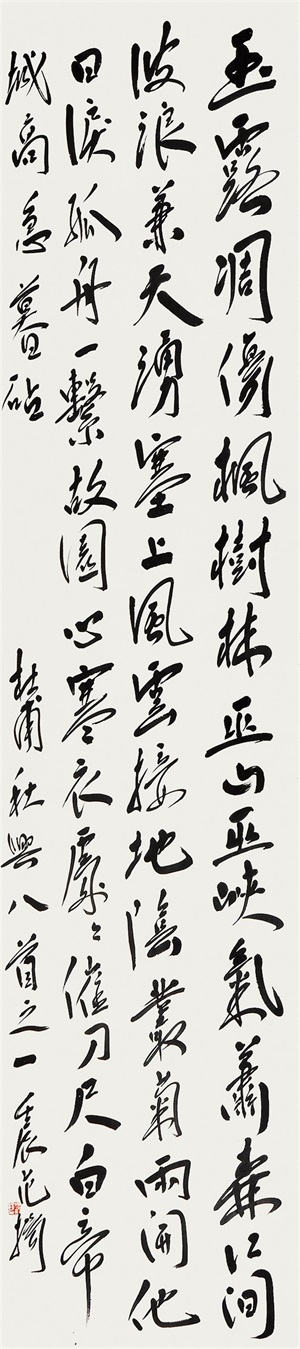 玉露凋傷楓樹林巫山巫峽氣蕭森江間
波浪兼天湧塞上風雲接地陰叢菊兩開他
日淚孤舟一繫故園心寒衣處〻催刀尺白帝
城高急暮砧 杜甫秋興八首之一 壬辰范